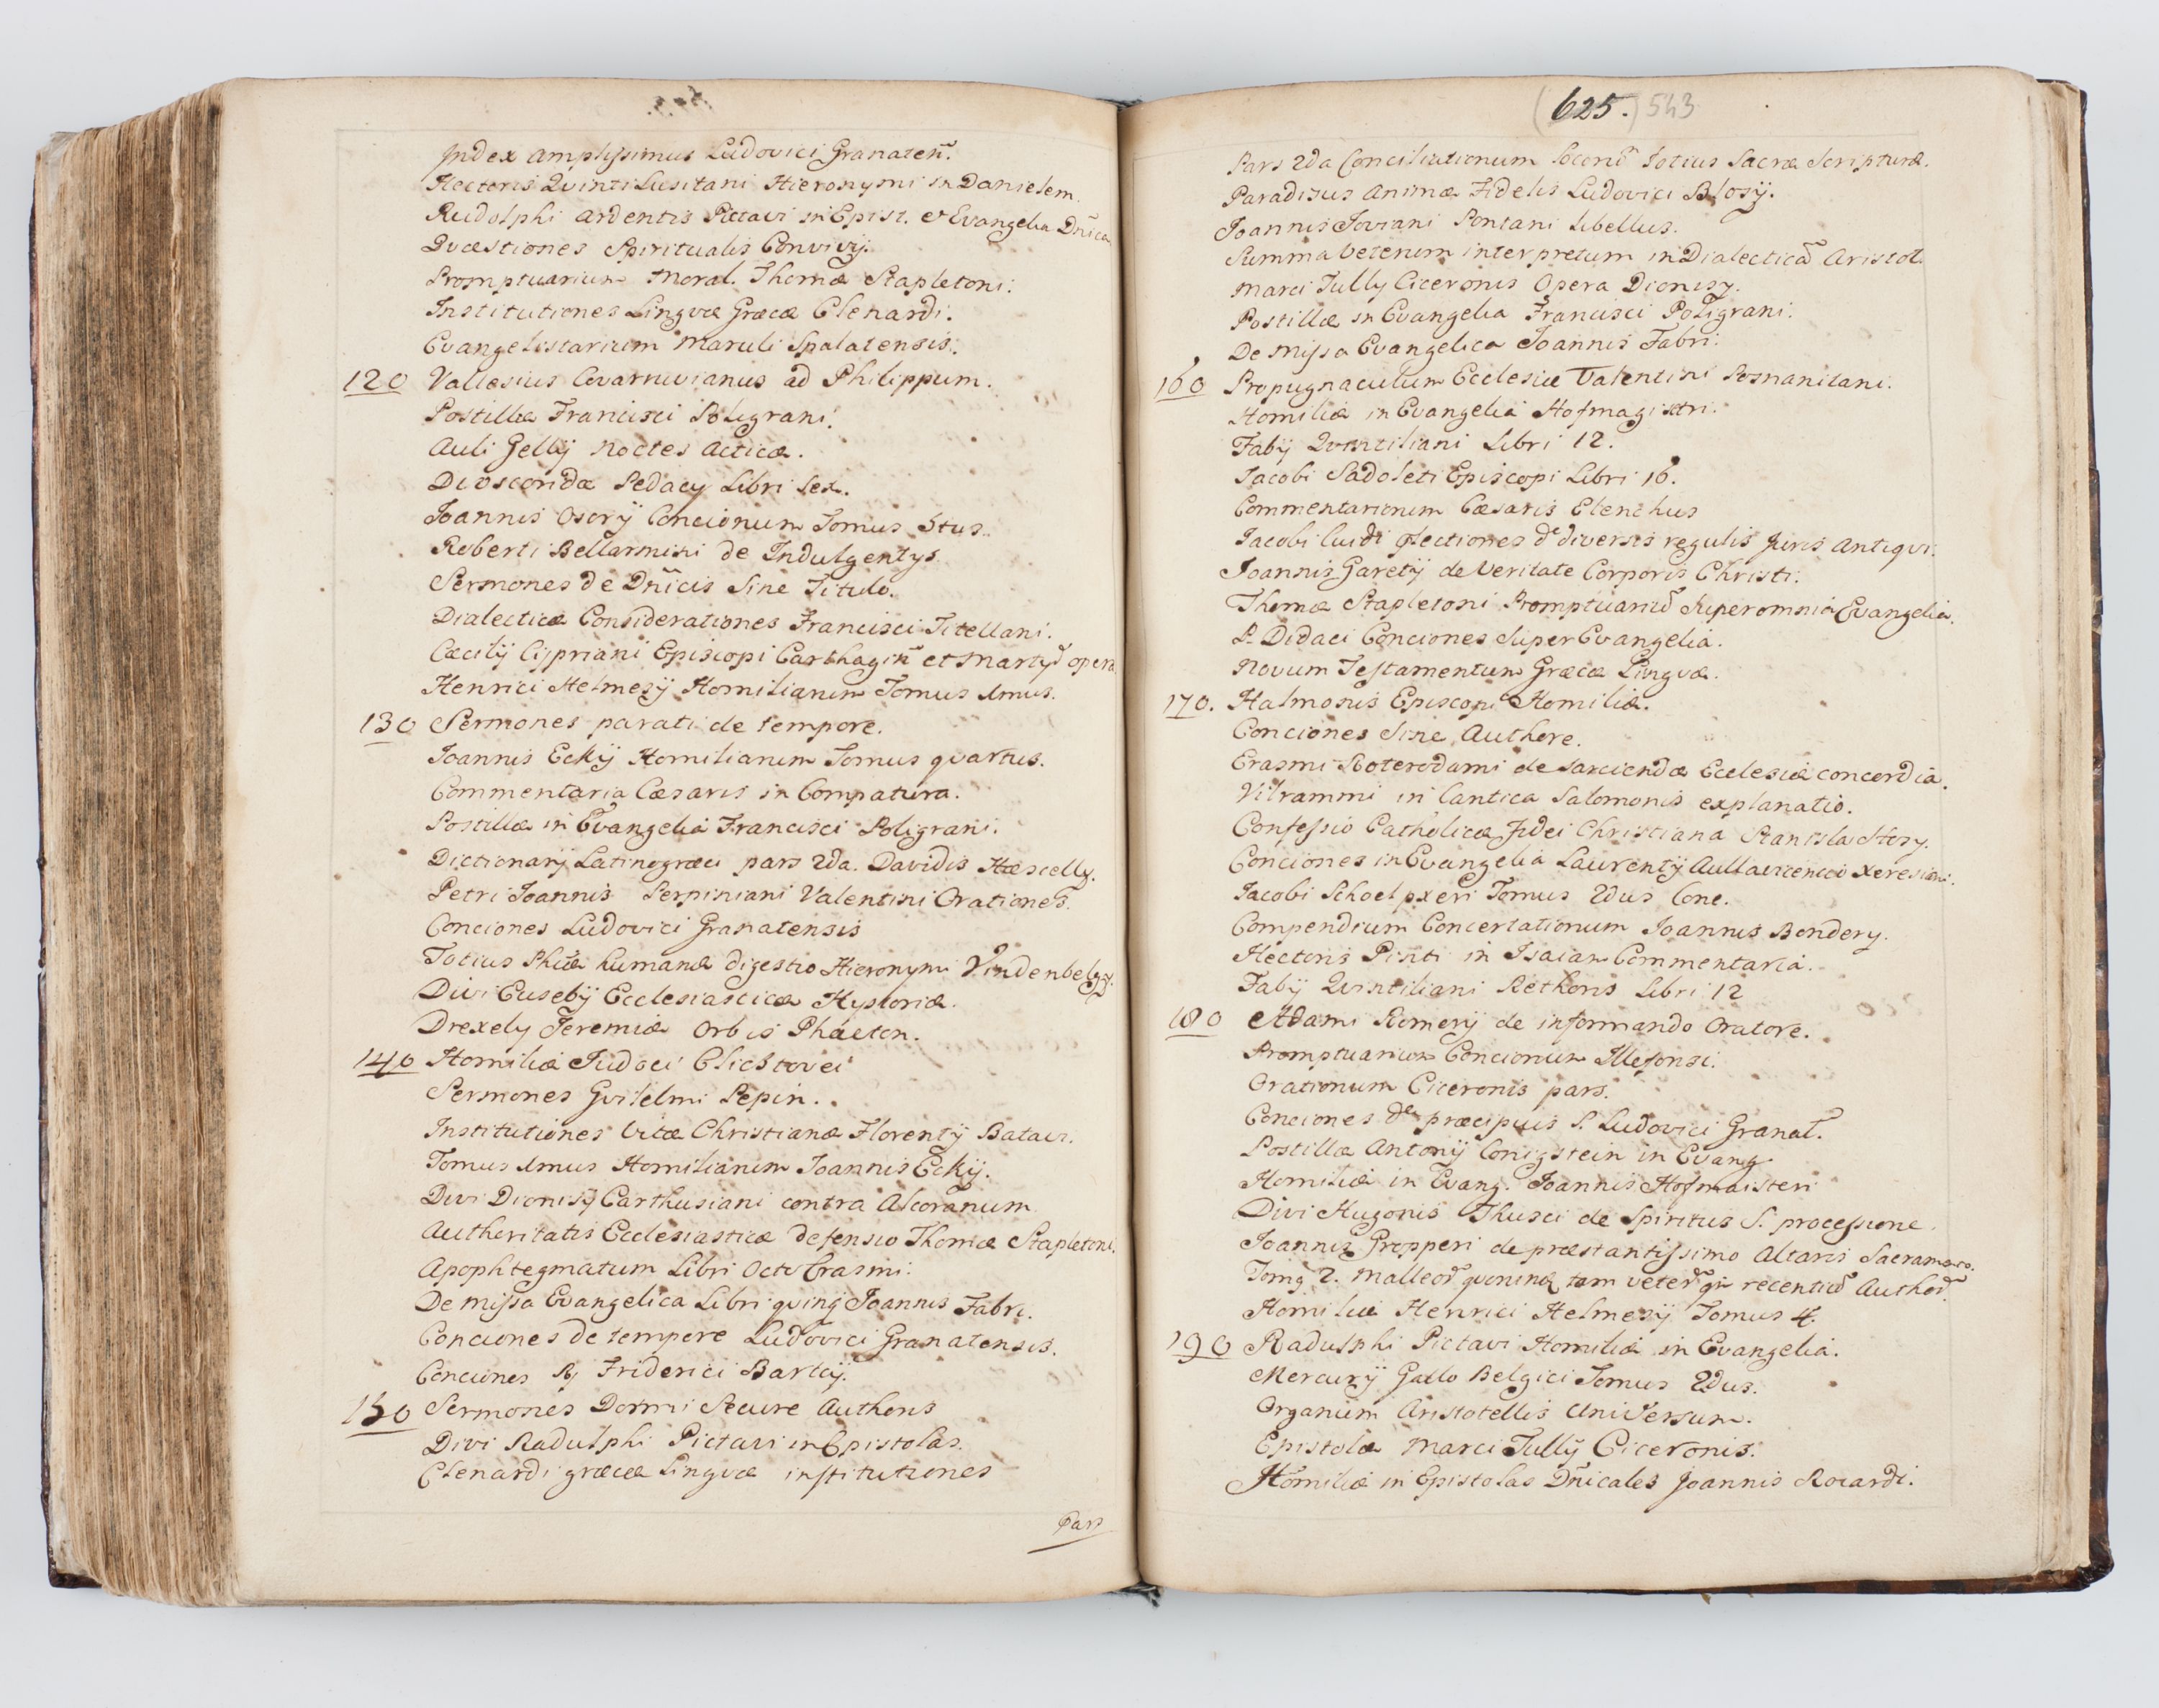 Index amplissimus Ludovici Granateñ.
Hectoris Qvinti Lusitani Hieronymi in Danielem.
Rudolphi ardentis Pictavi in Epist. et Evangelia Dñica
Qvæstiones Spiritualis Convivij.
Promptuarium Moral. Thomæ Stapletoni.
Institutiones Lingvæ Græcæ Clenardi.
Evangelistarium Maruli Spalatensis.
120 Vallesius Covarruvianus ad Philippum.
Postillæ Francisci Poligrani.
Auli Gellij Noctes Acticæ.
Dioscoridæ Pedacy Libri Sex.
Joannis Osorij Concionum Tomus 5tus.
Roberti Bellarmini de Indulgentys.
Sermones de Dñicis Sine Titulo.
Dialecticæ Considerationes Francisci Titellani.
Cæcilij Cijpriani Episcopi Carthagiñ et Martyr opera.
Henrici Helmesij Homiliarum Tomus 1mus.
130 Sermones parati de tempore.
Joannis Eckij Homiliarum Tomus qvartus.
Commentaria Cæsaris in Compatura.
Postillæ in Evangelia Francisci Poligrani.
Dictionarij Latinogræci pars 2da. Davidis Hæscelly.
Petri Joannis Perpiniani Valentini Orationes.
Conciones Ludovici Granatensis
Totius Phiæ humanæ digestio Hieronymi
Divi Eusebij Ecclesiasticæ Hystoriæ.
Drexely Jeremiæ Orbis Phaeton.
140 Homiliæ Judoci Clichtovei
Sermones Gvilelmi Pepin.
Institutiones Vitæ Christianæ Florentij Batavi.
Tomus 1mus Homiliarum Joannis Eckij.
Divi Dionisij Carthusiani contra Alcoranum
Authoritatis Ecclesiasticæ defensio Thomæ Stapletoni.
Apophtegmatum Libri Octo Erasmi.
De Missa Evangelica Libri qvinq Joannis Fabri.
Conciones de tempore Ludovici Granatensis.
Conciones Rj Friderici Bartcij.
150 Sermones Dormi Secure Authoris
Divi Radulphi Pictavi in Epistolas.
Clenardi græcæ Lingvæ institutiones
Pars
(625.) 543
Pars 2da Conciliationum Totius Sacræ Scripturæ.
Paradisus Animæ Fidelis Ludovici Blosij.
Joannis Joviani Pontani Libellus.
Summa Veterum interpretum in Dialecticã Aristot.
Marci Tully Ciceronis Opera Dionisy.
Postillæ in Evangelia Francisci Poligrani.
De Missa Evangelica Joannis Fabri.
160 Propugnaculum Ecclesiæ Valentini Posnanitani.
Homiliæ in Evangelia Hofmagistri.
Fabij Qvintiliani Libri 12.
Jacobi Sadoleti Episcopi Libri 16.
Commentariorum Cæsaris Elenchus
Jacobi Curdi de diversis regulis Juris Antiqvi.
Joannis Garetij de Veritate Corporis Christi.
Thomæ Stapletoni Promptuariũ Super omnia Evangelia.
P. Didaci Conciones Super Evangelia.
Novum Testamentum Græcæ Lingvæ.
170. Halmonis Episcopi Homiliæ.
Conciones Sine Authore.
Erasmi Roterodami de sarcienda Ecclesiæ concordia.
Vilrammi in Cantica Salomonis explanatio.
Confessio Catholicæ Fidei Christiana Stanislai Hosy.
Conciones in Evangelia Laurentij
Jacobi Schoelpxeri Tomus 2dus Conc.
Compendium Concertationum Joannis Bondery.
Hectoris Pinti in Isaiam Commentaria.
Fabij Qvintiliani Rethoris Libri 12
180 Adami Romerij de informando Oratore.
Promptuarium Concionum Illefonsi.
Orationum Ciceronis pars.
Conciones de præcipuis S. Ludovici Granat.
Postillæ Antonij Conigstein in Evang.
Homiliæ in Evang. Joannis Hofmaisteri
Divi Hugonis Thusci de Spiritus S. processione.
Joannis Gropperi de præstantissimo Altaris Sacramento.
Tomg 2. Malleor tam veter recentiũ Author.
Homiliæ Henrici Helmesij Tomus 4.
190 Radulphi Pictavi Homiliæ in Evangelia.
Mercurij Gallo Belgici Tomus 2dus.
Organum Aristotellis Universum.
Epistolæ Marci Tullij Ciceronis.
Homiliæ in Epistolas Dñicales Joannis Roiardi.